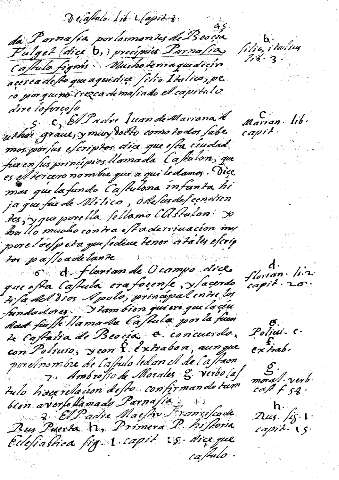 De Castulo. lib. 1. Capit. 3.
45
de Parnasia por los montes de Beocia
Fulget (dize b,) precipiti Parnasia
Castulo signis. Mucho tenia que dezir
acerca desto que aqui dize Silio Italico, pe
ro porque no crezca demasiado el capitulo
dire lo forçoso
5 c, El Padre Iuan de Mariana, Au
thor grave, y muy docto como todos sabe
mos por sus escriptos dize que esta ciudad
fue en sus principios llamada Castulon, que
es el tercero nombre que aqui le damos. Dize
mas que la fundo Castulona infanta, hi
ja que fue de Milico, o de sus descendien
tes, y que por ella se llamo Castulon: y
hallo mucho contra esta derivacion mas
por el respeto que se deve tener a tales escrip
tos passo adelante
6. d. Florian de Ocampo, dize
que esta Castulo era focense, y sacerdo
tisa del Dios Apolo, principal entre los
fundadores. y tambien quiere que la ciu
dad fuesse llamada Castulo por la fuen
te Castalia de Beocia e. concuerdo
con Polivio, y con f. Estrabon, aunque
por el nombre de Castulo le dan el de Castaon
7. Ambrosio de Morales g verbo Cas
tulo haze relacion desto confirmando tam
bien averse llamado Parnasia
8. El Padre Maestro Francisco de
Rus Puerta h, Primera P. historia
Eclesiastica sig. 1. capit 15. dize que
castulo.
b.
Silio italico
lib. 3.
c.
Marian. lib.
capit.
d.
Florian. li. 2
capit. 20.
e.
Polivi. c.
f.
extrab.
g.
moral. verb
cast 54.
h.
Rus. sig. 1.
capit. 15.